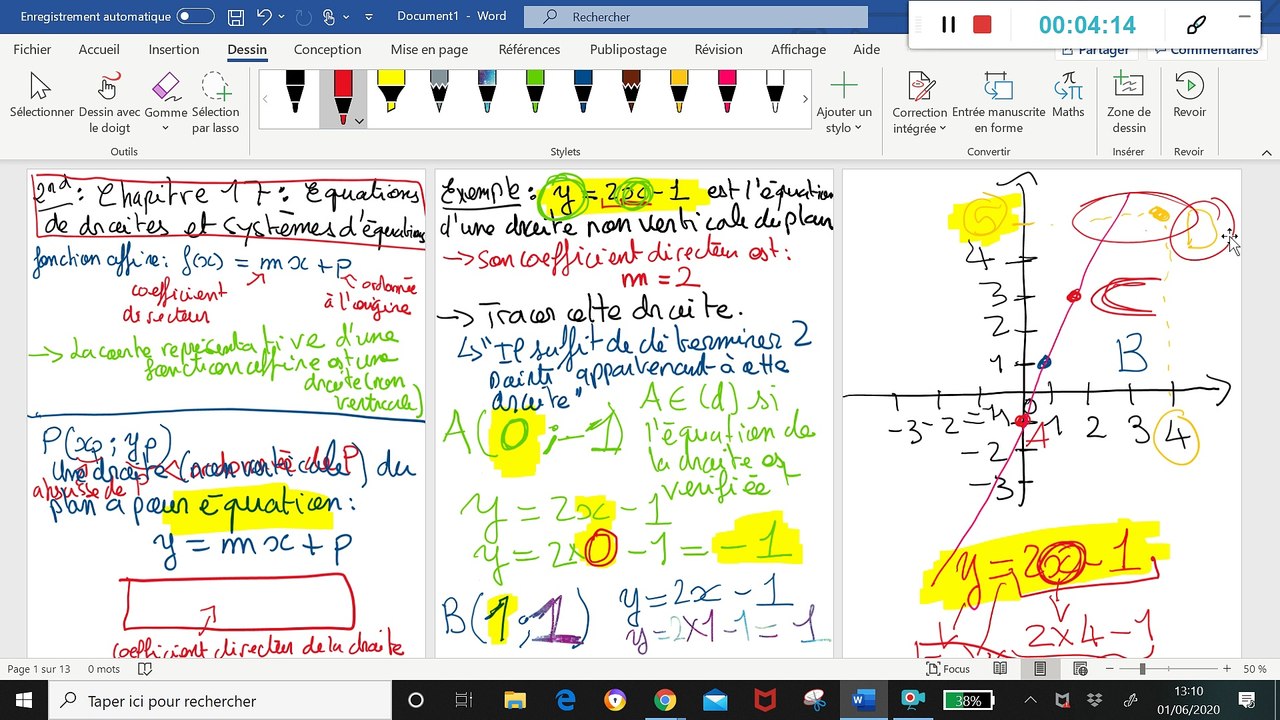 Enregistrement automatique
Document1 - Word
Rechercher
00:04:14
Fichier Accueil Insertion Dessin Conception Mise en page Références Publipostage Révision Affichage Aide
Partager Commentaires
Sélectionner
Dessin avec le doigt
Gomme
Sélection par lasso
Ajouter un stylo
Correction intégrée
Entrée manuscrite en forme
Maths
Zone de dessin
Revoir
Outils
Stylets
Convertir
Insérer
Revoir
2nd : Chapitre 17 : Equations
de droites et systèmes d'équations
fonction affine : f(x) = mx + p
coefficient
directeur
ordonnée
à l'origine
→ La courbe représentative d'une
fonction affine est une
droite (non
verticale)
P(xp ; yp)
Une droite (non verticale) du
abscisse de P
plan a pour équation :
y = mx + p
coefficient directeur de la droite
Exemple : y = 2x - 1 est l'équation
d'une droite non verticale du plan
→ Son coefficient directeur est :
m = 2
→ Tracer cette droite.
↳ "Il suffit de déterminer 2
points appartenant à cette
droite"
A(0 ; -1)
A ∈ (d) si
l'équation de
la droite est
vérifiée
y = 2x - 1
y = 2x0 - 1 = -1
B(1 ; 1)
y = 2x - 1
y = 2x1 - 1 = 1
5
4
3
2
1
-3 -2 -1 0 1 2 3 4
-1
-2
-3
A
B
C
D
y = 2x - 1
2x4 - 1
Page 1 sur 13
0 mots
Focus
50 %
Taper ici pour rechercher
38%
13:10
01/06/2020